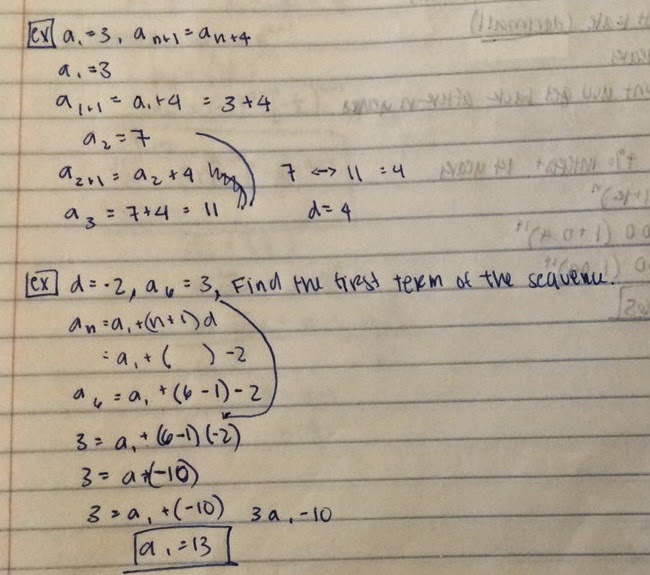 ex a₁ = 3, aₙ₊₁ = aₙ₊₄
a₁ = 3
a₁₊₁ = a₁ + 4 = 3 + 4
a₂ = 7
a₂₊₁ = a₂ + 4 7 ↔ 11 = 4
a₃ = 7 + 4 = 11 d = 4
ex d = -2, a₆ = 3, Find the first term of the
aₙ = a₁ + (n+1)d
= a₁ + ( ) -2
a₆ = a₁ + (6 - 1) - 2
3 = a₁ + (6-1)(-2)
3 = a + (-10)
3 = a₁ + (-10) 3 a₁ - 10
a₁ = 13